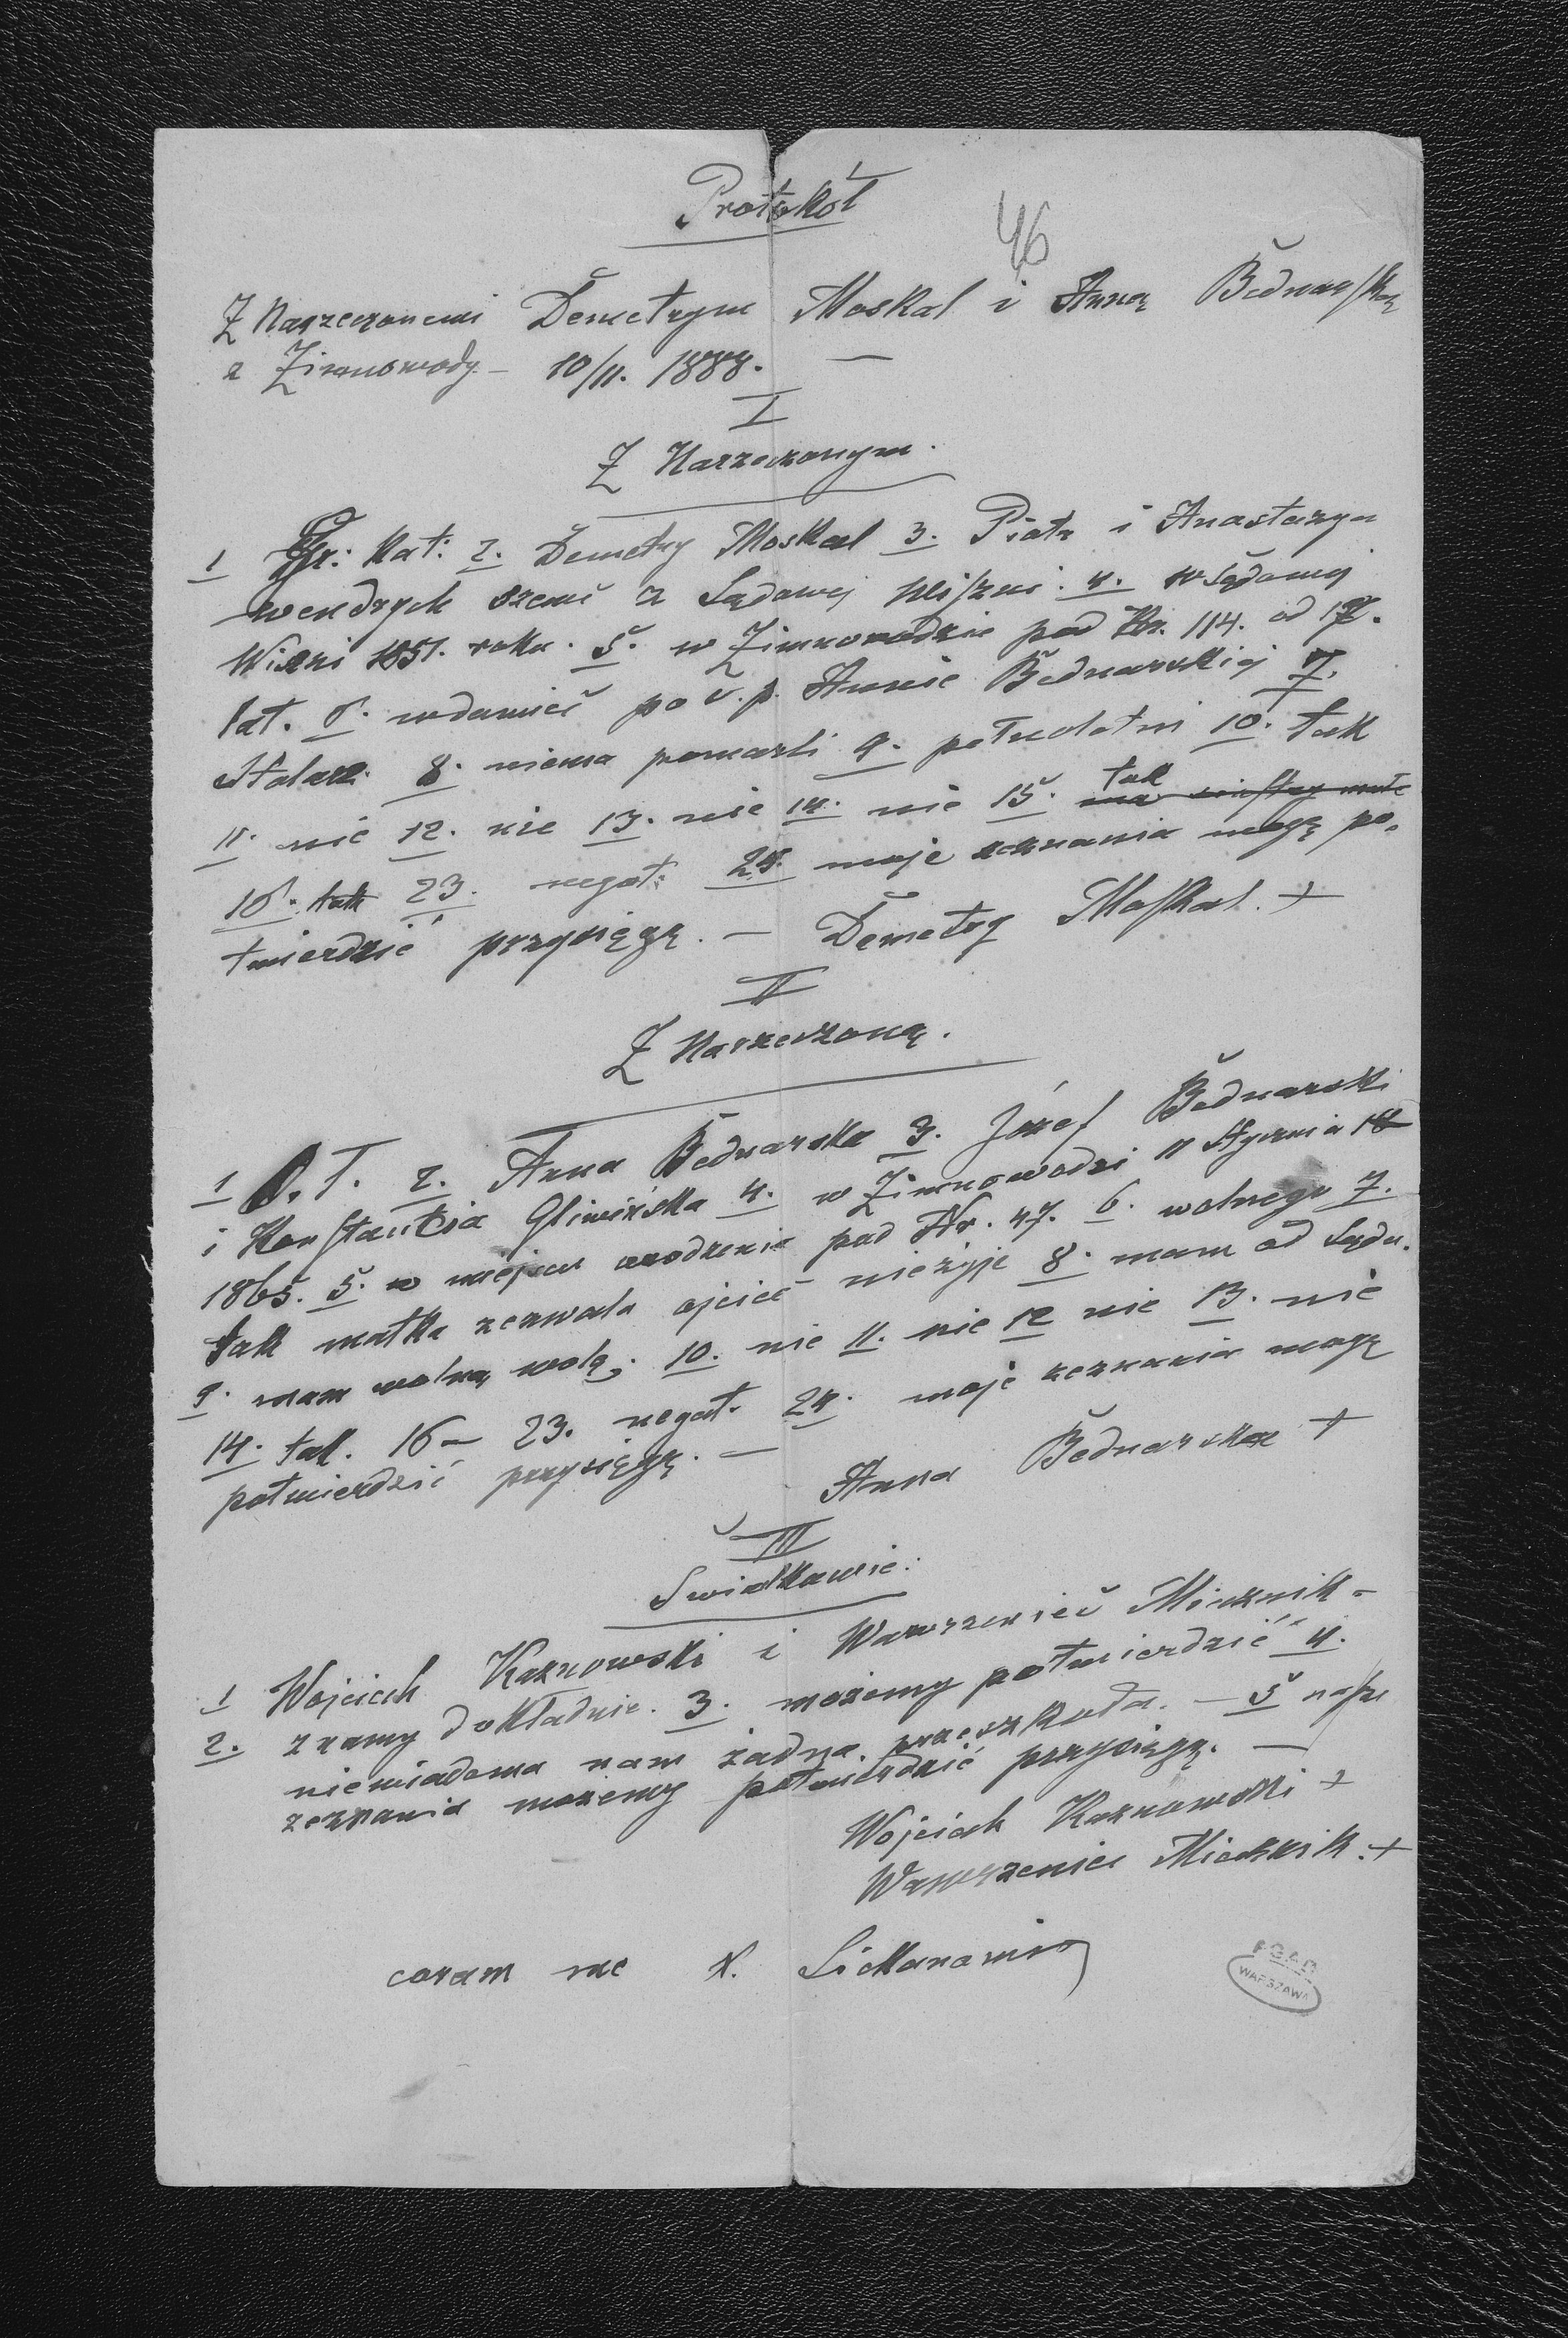 Protokół
46
Z Narzeczonemi Demetrym Moskal i Anną Bednarską
z Zimnowody – 10/11. 1888. —
I
Z Narzeczonym.
1 Gr: Kat: 2. Demetry Moskal 3. Piotr i Anastazya
z Sądowej Wiszni. 4. w Sądowej
Wiszni 1851. roku. 5. w Zimnowodzie pod Nr. 114. od
lat. 6. wdowieć po ś. p. Annie Bednarskiej 7.
Stolarz. 8. niema pomarli 9. pełnoletni 10. tak
11. nie 12. nie 13. nie 14. nie 15. tak
16. tak 23. negat: 24. moje zeznania mogę po-
twierdzić przysięgą. — Demetry Moskal. +
II
Z Narzeczoną.
1 O. Ł. 2. Anna Bednarska 3. Józef Bednarski
i Konstancia Gliwińska 4. w Zimnowodzi 11 Stycznia 18
1865. 5. w miejscu urodzenia pod Nr. 47. 6. wolnego 7.
tak matka zezwala ojcieć nieżyje 8. mam od Sądu.
9. mam wolną wolę. 10. nie 11. nie 12 nie 13. nie
14. tak. 16 – 23. negat. 24. moje zeznania mogę
potwierdzić przysięgą. —
Anna Bednarska +
III
Świadkowie:
1 Wojciech Kaznowski i Wawrzenieć Miecznik –
2. znamy dokładnie. 3. możemy potwierdzić 4.
niewiadoma nam żadna przeszkoda. — 5 nasze
zeznania możemy potwierdzić przysięgą. —
Wojciech Kaznowski +
Wawrzeniec Miecznik. +
coram me X.
AGAD
WARSZAWA